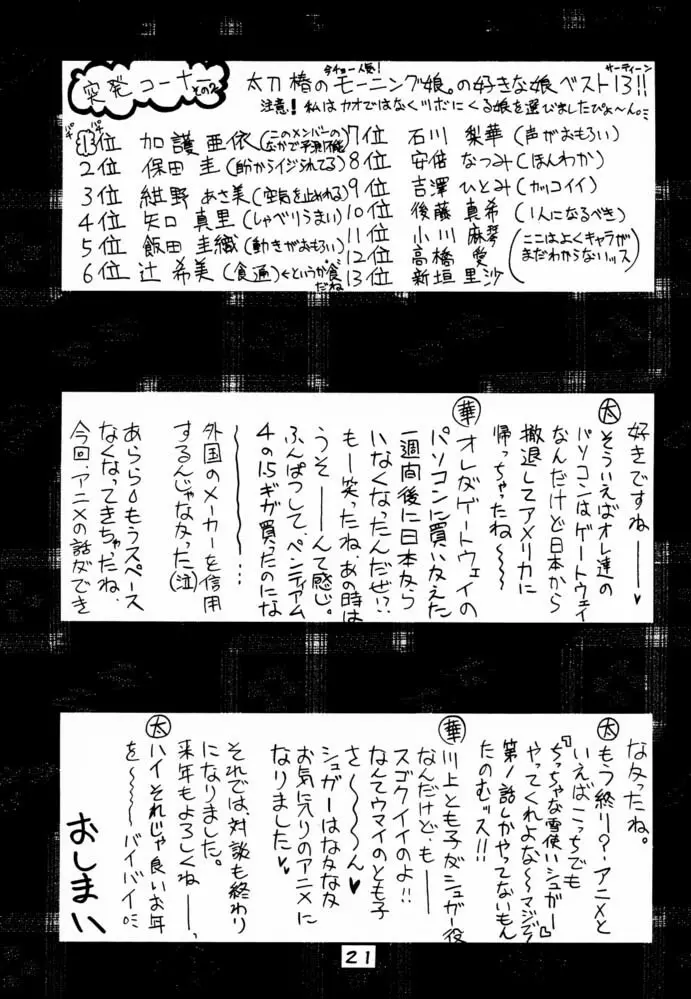 突発コーナー その2
今チョー人気!
太刀椿のモーニング娘。の好きな娘ベスト13!!
サーティーン
注意!私はカオではなくツボにくる娘を選びましたぴょ〜ん。
1位 加護亜依(このメンバーのなかで予測不能)
2位 保田 圭(助からイジられてる)
3位 紺野 あさ美(空気を止めれる)
4位 矢口 真里(しゃべりうまい)
5位 飯田 圭織(動きがおもろい)
6位 辻 希美(食遍)←というか食だね
7位 石川 梨華(声がおもろい)
8位 安倍 なつみ(ほんわか)
9位 吉澤 ひとみ(カッコイイ)
10位 後藤 真希(1人になるべき)
11位 小川 麻琴
12位 高橋 愛
13位 新垣 里沙
(ここはよくキャラがまだわからないッス)
好きですね――♥
太 そういえばオレ達の
パソコンはゲートウェイ
なんだけど日本から
撤退してアメリカに
帰っちゃったね〜〜
華 オレがゲートウェイの
パソコンに買い友えた
一週間後に日本から
いなくなったんだぜ!?
もー笑ったね、あの時は
うそ――んて感じ。
ふんぱつして、ペンティアム
4の1.5ギガ買ったのにな
〜〜〜〜〜…
外国のメーカーを信用
するんじゃなかった(泣)
あららもうスペース
なくなってきちゃたね、
今回、アニメの話ができ
なかったね。
太 もう終り?アニメと
いえばこっちでも
『ちっちゃな雪使いシュガー』
やってくれよな〜〜マジで
第1話しかやってないもん
たのむッス!!
華 川上とも子がシュガー役
なんだけども――
スゴクイイのよ!!
なんてウマイのとも子
さ〜〜〜ん♥
シュガーはなななな
お気に入りのアニメに
なりました♥♥
それでは、対談も終わり
になりました。
来年もよろしくね――、
太 ハイそれじゃ良いお年
を〜〜〜〜バイバイ
おしまい
21